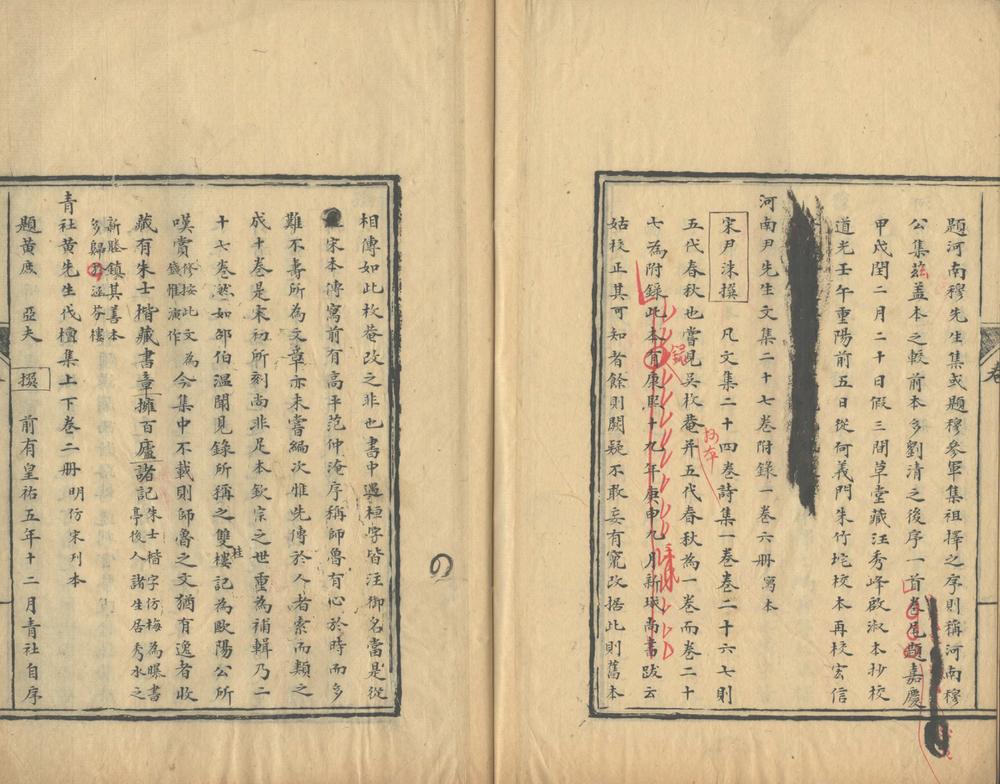 題河南穆先生集或題穆參軍集祖擇之序則稱河南穆
公集茲蓋本之較前本多劉清之後序一首卷尾題嘉慶
甲戌閏二月二十日假三間草堂藏汪秀峰啟淑本抄校
道光壬午重陽前五日從何義門朱竹垞校本再校宏信
河南尹先生文集二十七卷附錄一卷六冊 寫本
宋尹洙撰 凡文集二十四卷詩集一卷卷二十六七則
五代春秋也嘗見吳枚菴鈔本幷五代春秋為一卷而卷二十
七為附錄此本有康熙十九年庚申九月新城尚書跋云
姑校正其可知者餘則闕疑不敢妄有竄改據此則舊本
相傳如此枚菴改之非也書中遇桓字皆注御名當是從
宋本傳寫前有高平范仲淹序稱師魯有心於時而多
難不壽所為文章亦未嘗編次雅先傳於人者索而類之
成十卷是宋初所刻尚非足本欽宗之世重為補輯乃二
十七卷然如邵伯溫聞見錄所稱之雙桂樓記為歐陽公所
嘆賞修按此文為錢惟演作今集中不載則師魯之文猶有逸者收
藏有朱士楷藏書章擁百廬諸記朱士楷字仿梅為曝書亭後人諸生居秀水之
新塍鎮其善本多歸於涵芬樓
青社黃先生伐檀集上下卷二冊 明仿宋刊本
題黃庶 亞夫 撰 前有皇祐五年十二月青社自序